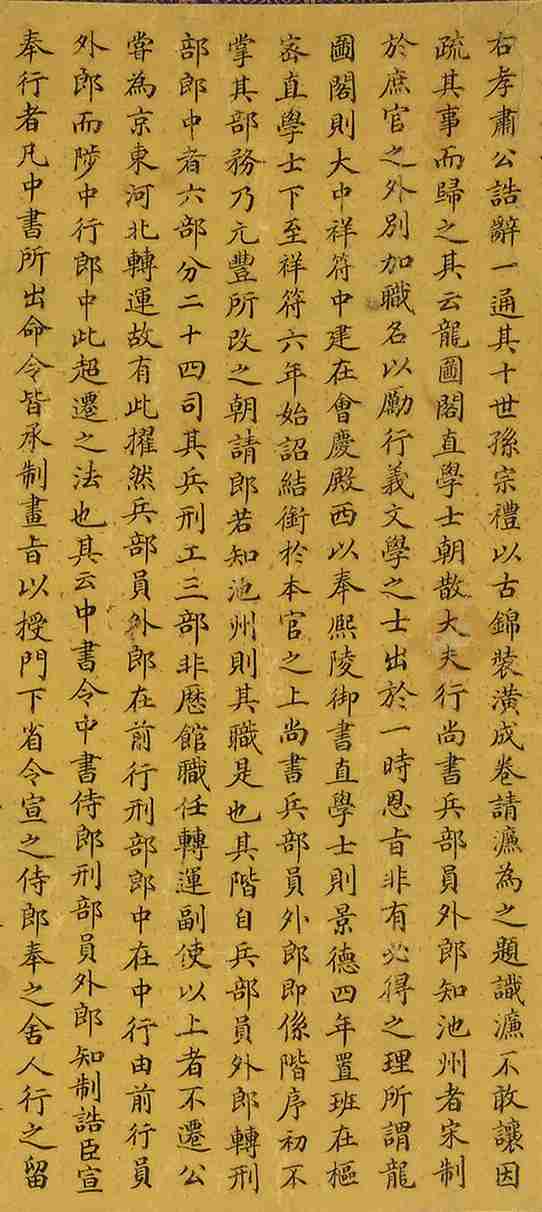 右孝肅公誥辭一通其十世孫宗禮以古錦裝潢成卷請濂為之題識濂不敢讓因
疏其事而歸之其云龍圖閣直學士朝散大夫行尚書兵部員外郎知池州者宋制
於庶官之外別加職名以勵行義文學之士出於一時恩旨非有必得之理所謂龍
圖閣則大中祥符中建在會慶殿西以奉熙陵御書直學士則景德四年置班在樞
密直學士下至祥符六年始詔結銜於本官之上尚書兵部員外郎即係階序初不
掌其部務乃元豐所改之朝請郎若知池州則其職是也其階自兵部員外郎轉刑
部郎中者六部分二十四司其兵刑工三部非歷館職任轉運副使以上者不遷公
嘗為京東河北轉運故有此擢然兵部員外郎在前行刑部郎中在中行由前行員
外郎而陟中行郎中此超遷之法也其云中書令中書侍郎刑部員外郎知制誥臣宣
奉行者凡中書所出命令皆承制畫旨以授門下省令宣之侍郎奉之舍人行之留